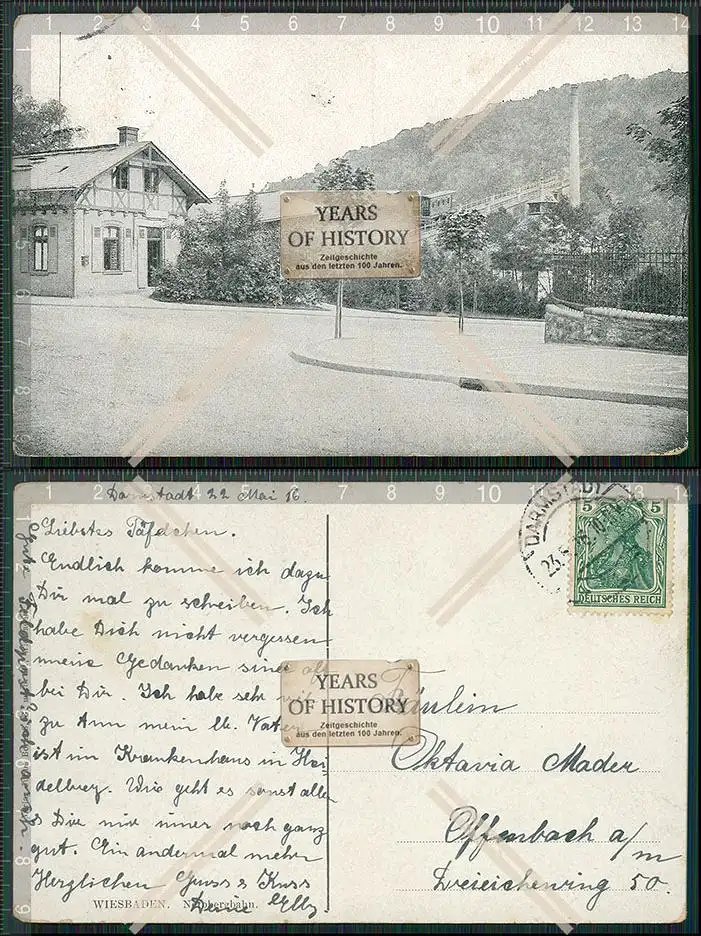 YEARS
OF HISTORY
Zeitgeschichte
aus den letzten 100 Jahren.
Darmstadt 22 Mai 16.
Liebstes Täfelchen.
Endlich komme ich dazu
Dir mal zu schreiben. Ich
habe Dich nicht vergessen
meine Gedanken sind oft
bei Dir. Ich habe sehr
zu tun mein lb. Vater
ist im Krankenhaus in Hei
delberg. Wie geht es sonst
Dir mir immer noch ganz
gut. Ein andermal mehr
Herzlichen Gruss & Kuss
Deine Elly.
WIESBADEN. Nerobergbahn.
DARMSTADT
5 5
DEUTSCHES REICH
YEARS
OF HISTORY
Zeitgeschichte
aus den letzten 100 Jahren.
Fräulein
Oktavia Mader
Offenbach a/m
Dreieichenring 50.